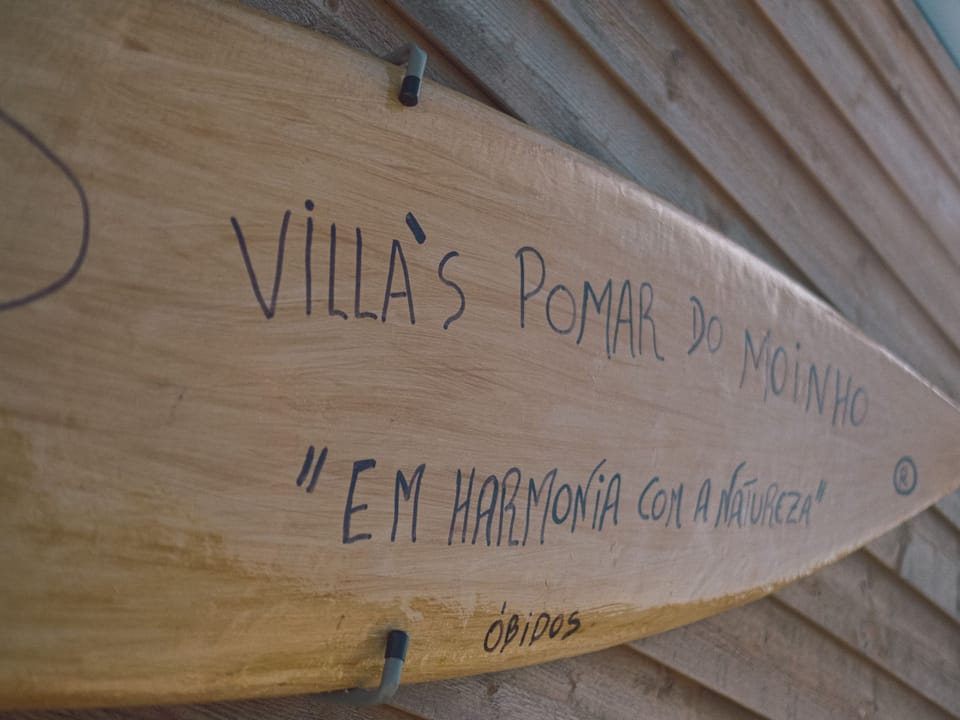 VILLÀ'S POMAR DO MOINHO
®
"EM HARMONÍA COM A NATUREZA"
ÓBIDOS